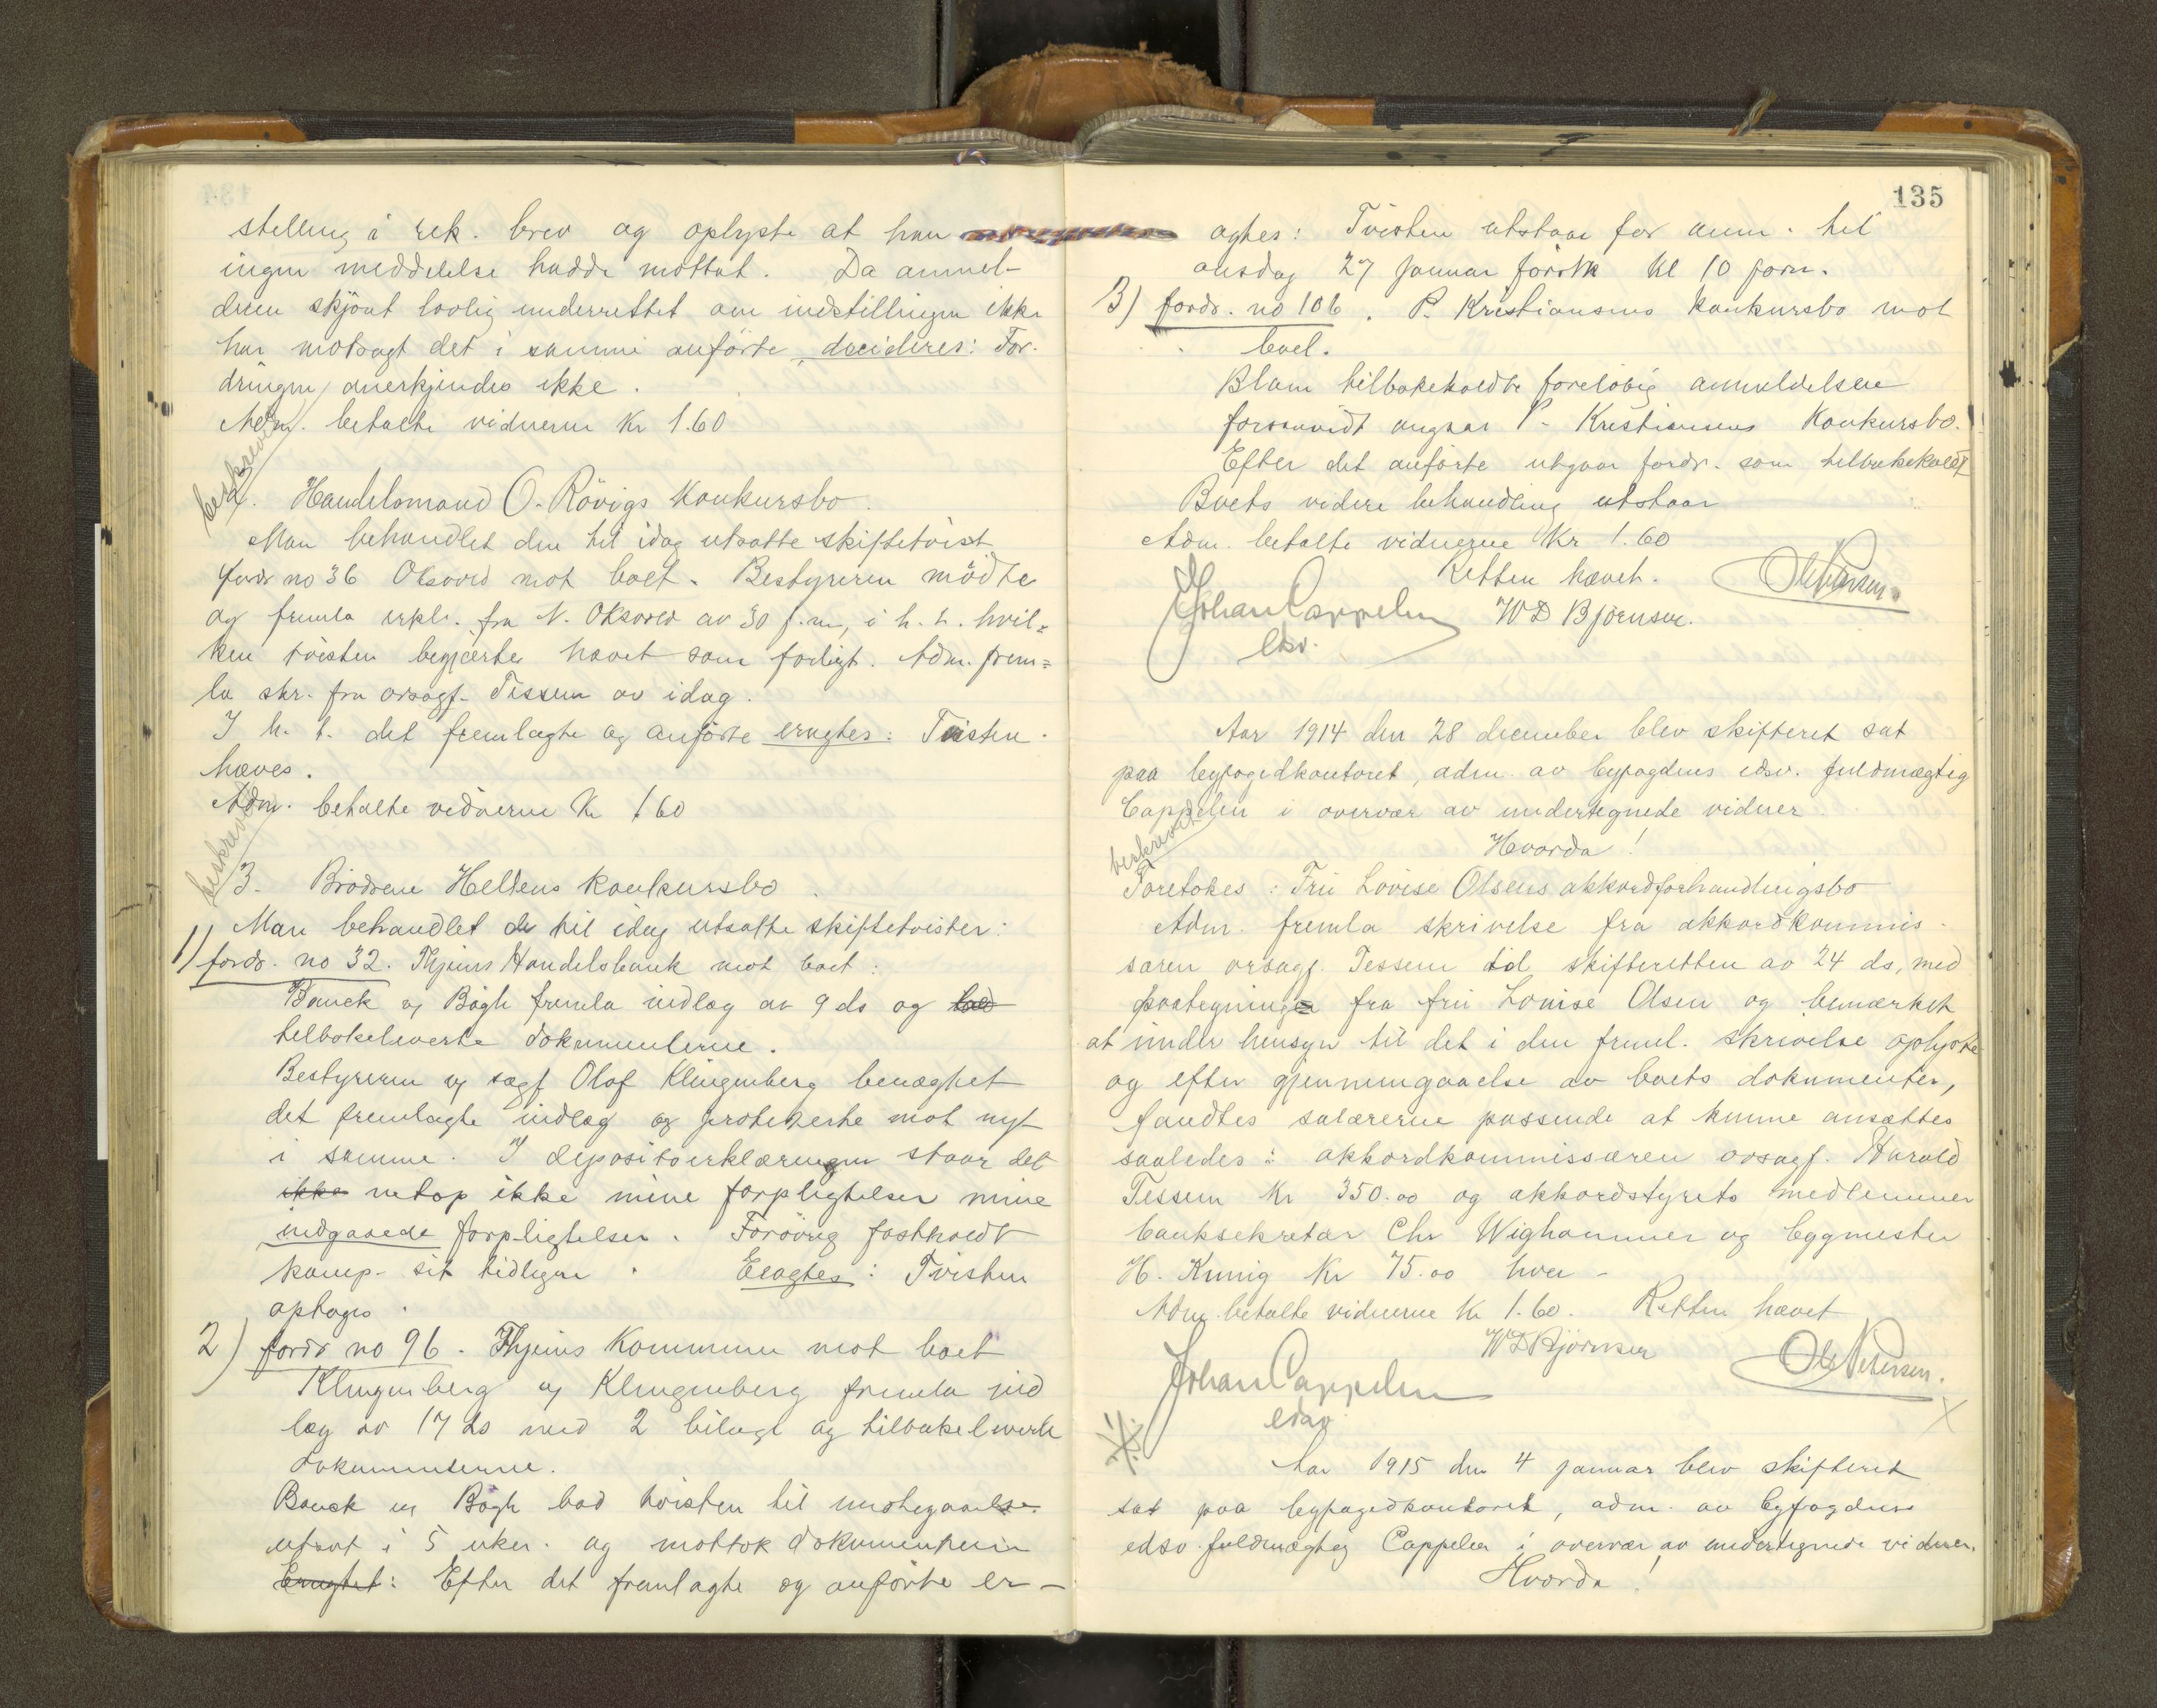 stelling i rek. brev og oplyste at han
ingen meddelelse hadde mottat. Da anmel-
deren skjönt lovlig underrettet om indstillingen ikke
har motsagt det i samme anförte, decideres: For-
dringen anerkjendes ikke.
Adm. betalte vidnerne Kr 1.60
beskrevet
2. Handelsmand O. Rövigs Konkursbo.
Man behandlet den til idag utsatte skiftetvist
fordr no 36 Oksvold mot boet. Bestyreren mödte
og fremla erkl. fra N. Oksvold av 30 f.m., i h. t. hvil=
ken tvisten begjærtes hævet som forligt. Adm. frem=
la skr. fra orsagf. Tessem av idag.
I h. t. det fremlagte og anförte eragtes: Tvisten
hæves.
Adm. betalte vidnerne Kr 1.60
beskrevet
3. Brödrene Heltens konkursbo.
Man behandlet de til idag utsatte skiftetvister:
1) fordr. no 32. Thjems Handelsbank mot boet:
Bauck og Bögh fremla indlæg av 9 ds og bad
tilbakeleverte dokumenterne.
Bestyreren og sagf Olaf Klingenberg benægtet
det fremlagte indlæg og protesterte mot nyt
i samme. I depositoerklæringen staar det
ikke netop ikke mine forpligtelser mine
indgaaede forpligtelser. Forövrig fastholdt
komp. sit tidligere. Eragtes: Tvisten
optages.
2) fordr no 96. Thjems Kommune mot boet
Klingenberg og Klingenberg fremla ind
læg av 17 ds med 2 bilag og tilbakeleverte
dokumenterne.
Bauck og Bögh bad tvisten til imötegaaelse
utsat i 5 uker. og mottok dokumenterne
Eragtet: Efter det fremlagte og anförte er-
135
agtes: Tvisten utstaar for anm. til
onsdag 27 januar förstk kl 10 form.
3) fordr. no 106. P. Kristiansens konkursbo mot
boet.
Blom tilbakeholdt forelöbig anmeldelsen
forsaavidt angaar P. Kristiansens Konkursbo.
Efter det anförte utgaar fordr. som tilbakekaldt
Boets videre behandling utstaar
Adm. betalte vidnerne Kr 1.60
Retten hævet.
Johan Cappelen W D Björnsen. Ole Petersen.
edsv.
Aar 1914 den 28 december blev skifteret sat
paa byfogedkontoret, adm. av byfogdens edsv. fuldmægtig
Cappelen i overvær av undertegnede vidner
Hvorda!
beskrevet
Foretokes: Fru Lovise Olsens akkordforhandlingsbo
Adm. fremla skrivelse fra akkordkommis-
særen orsagf. Tessem til skifteretten av 24 ds, med
paategning fra fru Lovise Olsen og bemærket
at under hensyn til det i den freml. skrivelse oplyste
og efter gjennemgaaelse av boets dokumenter,
fandtes salærerne passende at kunne ansættes
saaledes: akkordkommissæren orsagf. Harald
Tessem Kr 350.00 og akkordstyrets medlemmer
banksekretær Chr Wighammer og bygmester
H. Kunig Kr 75.00 hver.
Adm. betalte vidnerne Kr 1.60. Retten hævet
W D Björnsen
Johan Cappelen Ole Petersen.
edsv.
Aar 1915 den 4 januar blev skifteret
sat paa byfogedkontoret, adm. av byfogdens
edsv. fuldmægtig Cappelen i overvær av undertegnede vidner.
Hvorda!